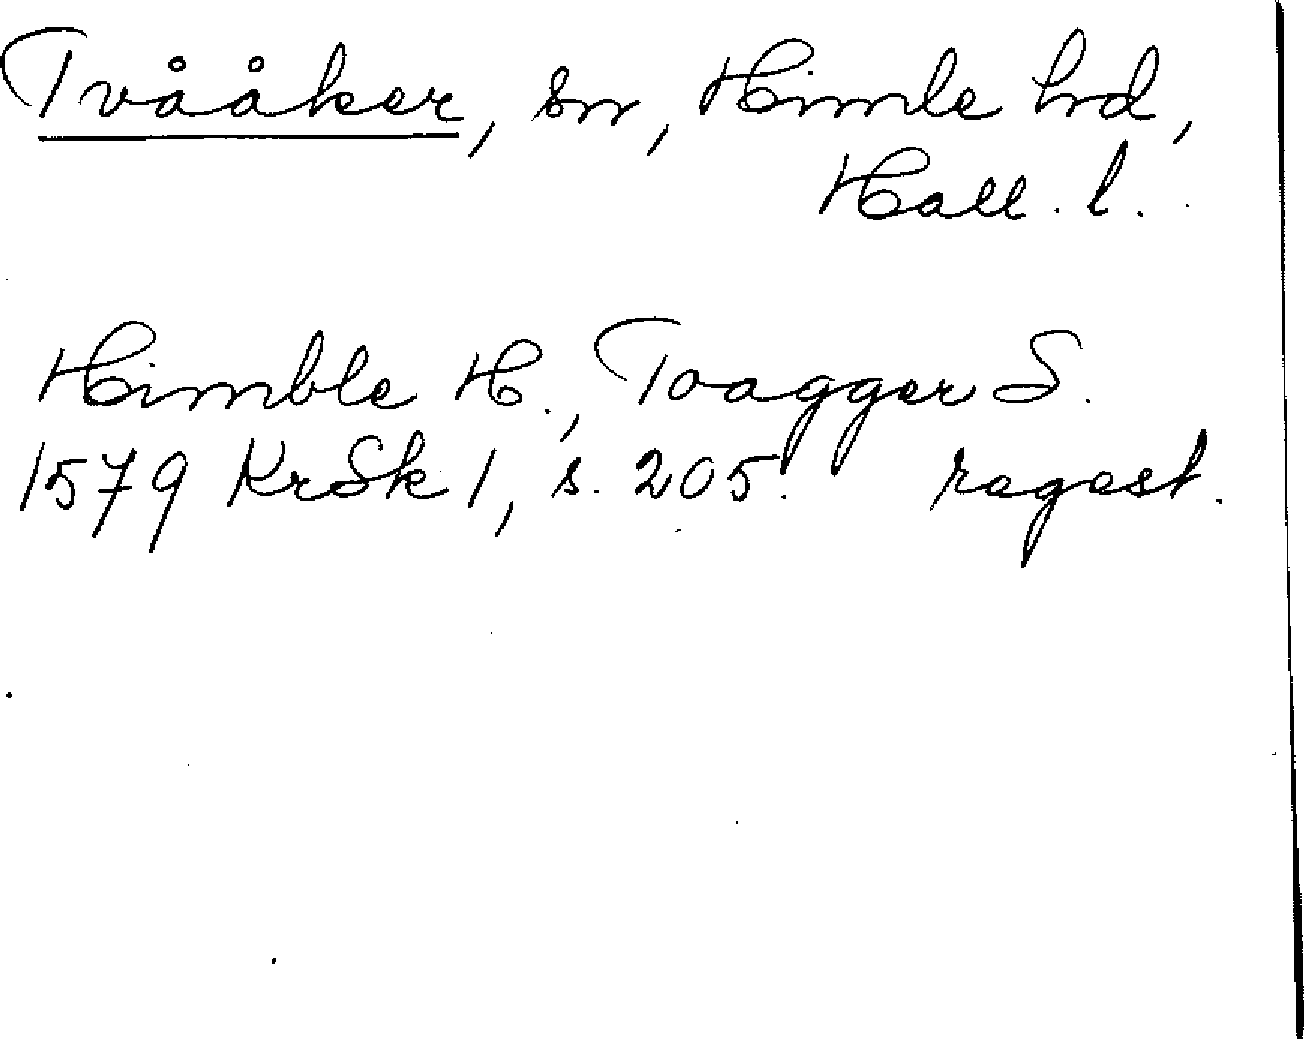 Tvååker, sn, Himle hd,
Hall. l.
Himble H., Toagger S.
1579 KrSk 1, s. 205. regest.